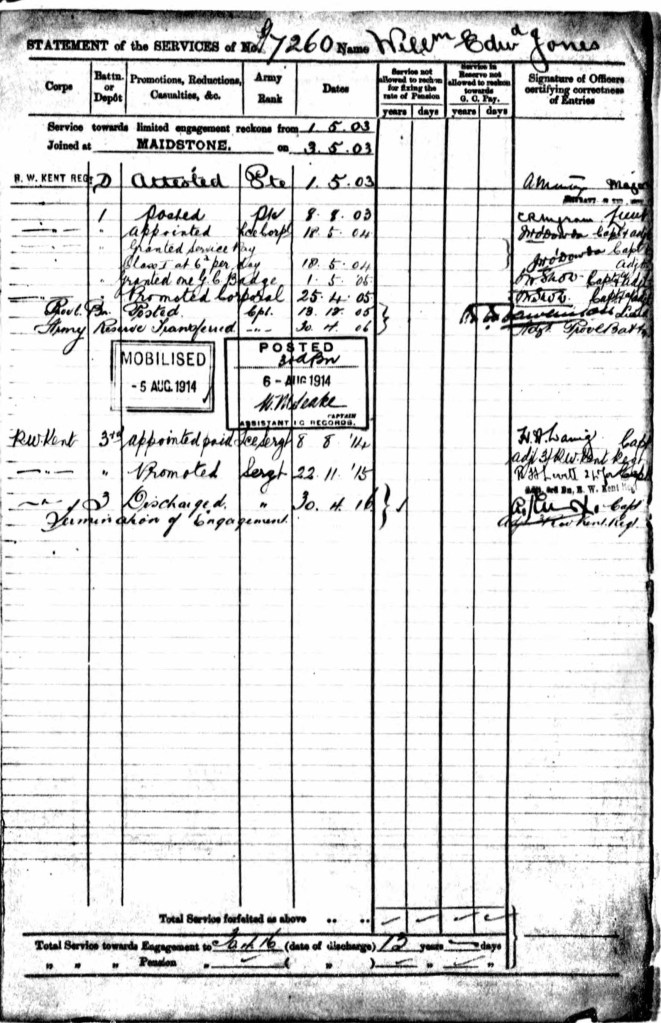 STATEMENT of the SERVICES of No. 7260 Name Willm Edwd Jones
Corps
Battn. or Depôt
Promotions, Reductions, Casualties, &c.
Army Rank
Dates
Service not allowed to reckon for fixing the rate of Pension
years days
Service in Reserve not allowed to reckon towards G. C. Pay.
years days
Signature of Officers certifying correctness of Entries
Service towards limited engagement reckons from 1.5.03
Joined at MAIDSTONE. on 3.5.03
R. W. KENT REG. D Attested Pte 1.5.03 Major
1 Posted Pte 8.8.03 Lieut
" Appointed Lce Corpl 18.5.04 Capt & Adjt
Granted Service Pay
Class I at 6d per day 18.5.04 Capt Adjt
" granted one G.C. Badge 1.5.05 Capt & Adjt
" Promoted Corporal 25.4.05 Capt & Adjt
Provl. Bn. Posted Cpl. 13.12.05 Lieut
Army Reserve Transferred 30.4.06 Adjt Provl Battn
MOBILISED
- 5 AUG. 1914
POSTED
3rd Bn
6 - AUG 1914
CAPTAIN
ASSISTANT I/C RECORDS.
R.W. Kent 3rd appointed paid Lce Sergt 8 8 '14 Capt
Adjt 3/R.W. Kent Regt
" Promoted Sergt 22.11.'15
Adjt. 3rd Bn. R. W. Kent Regt
3 Discharged. " 30.4.16 Capt
Termination of Engagement
Total Service forfeited as above .. ..
Total Service towards Engagement to (date of discharge) 13 years — days
" " " Pension ( " " ) " "